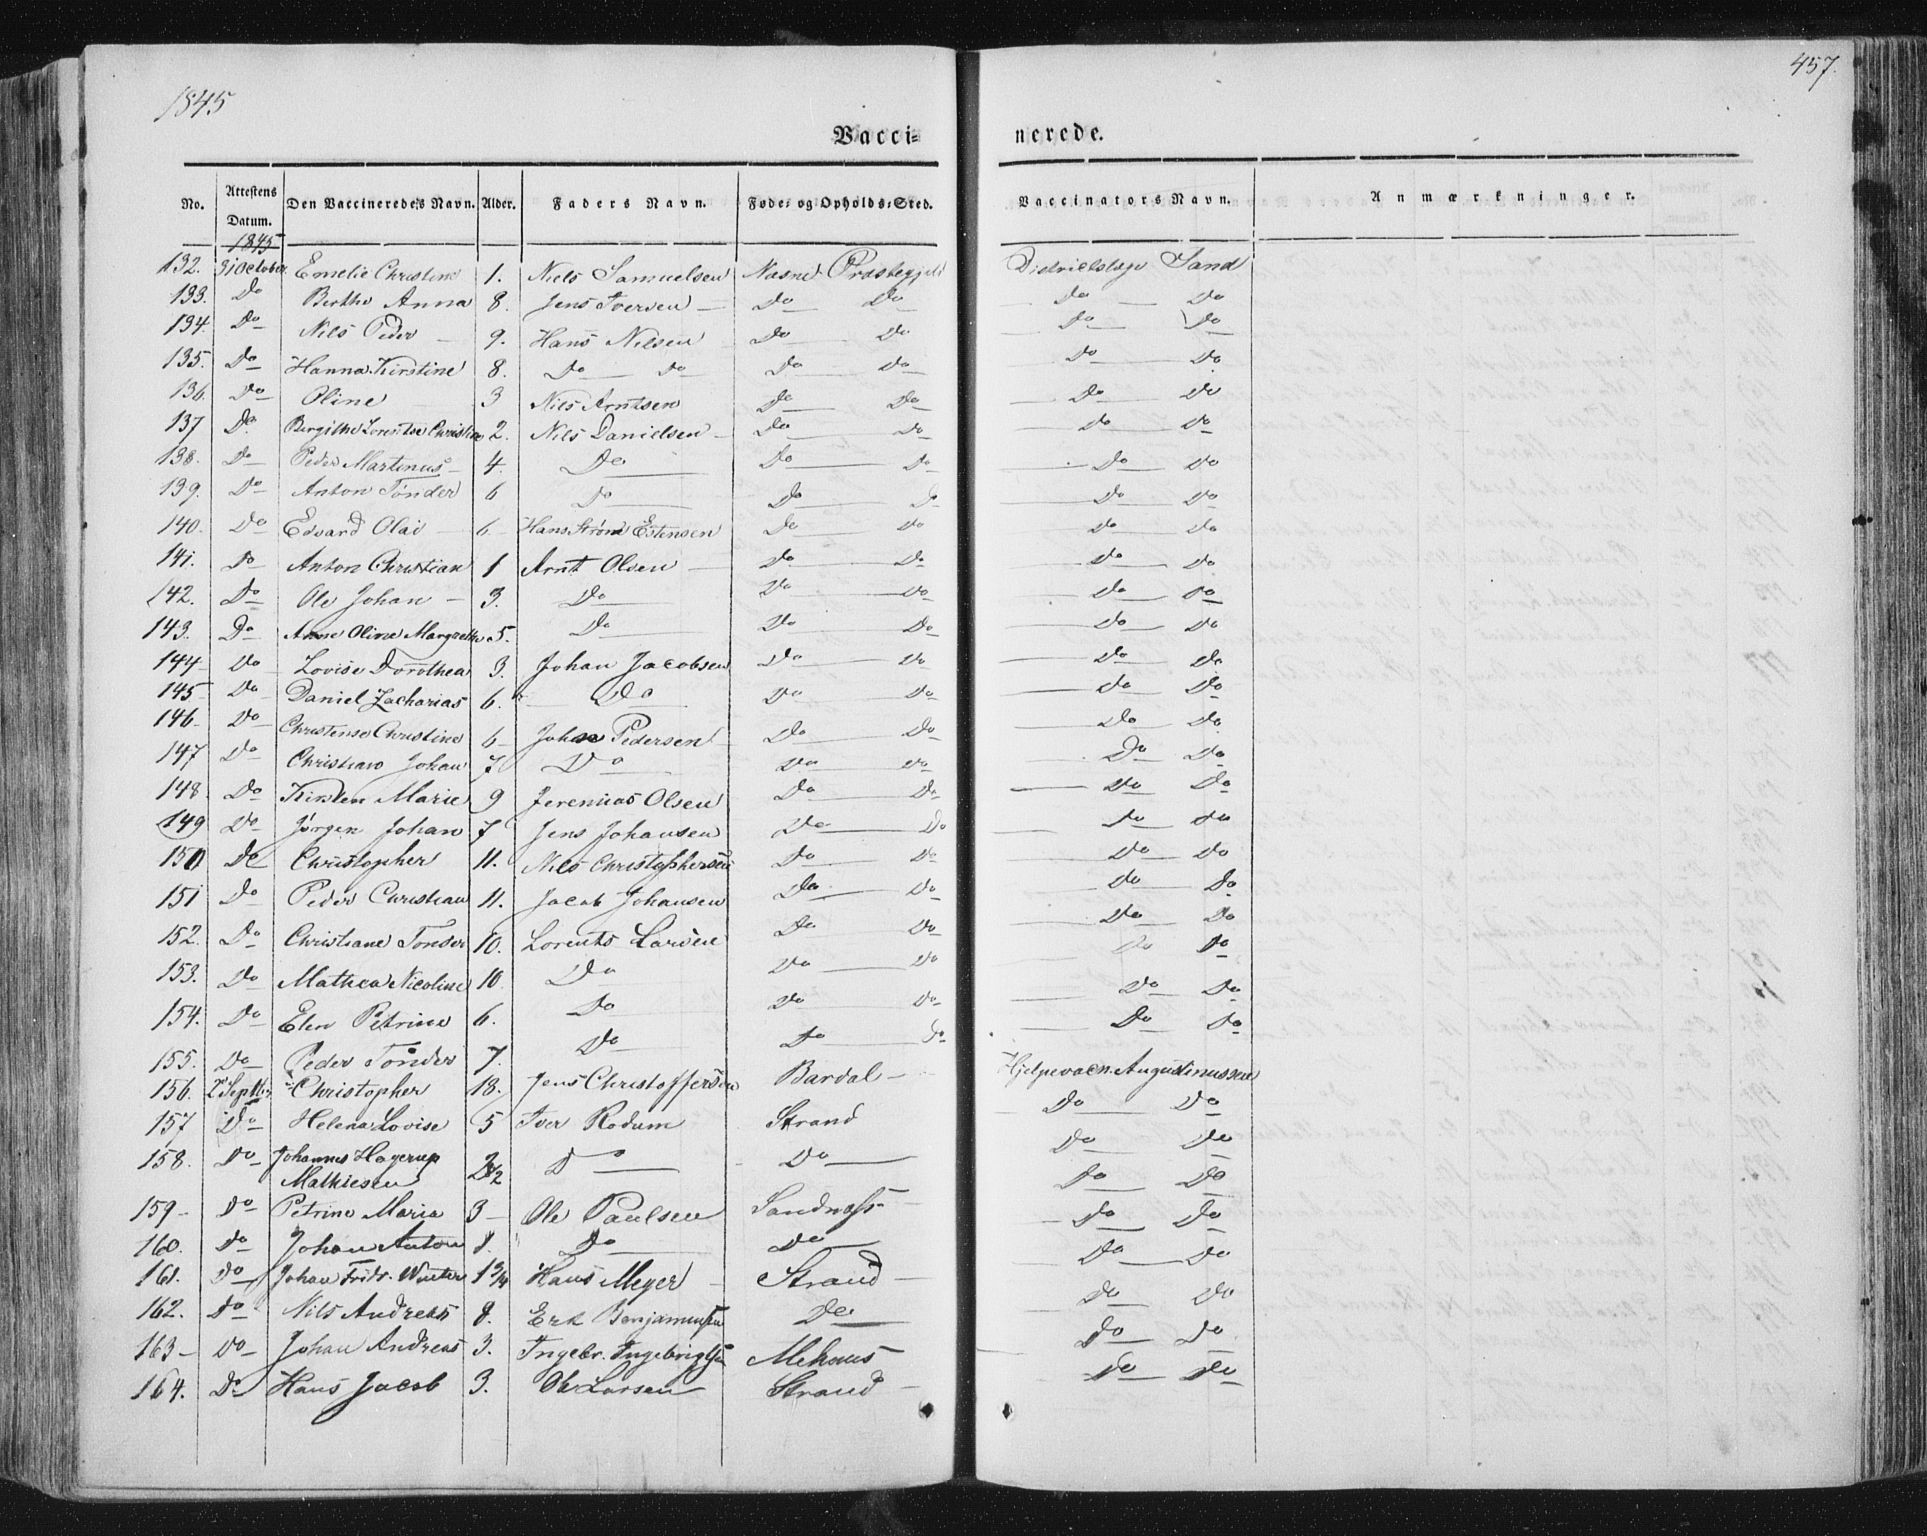 1845
457.
Vacci-nerede.
No. | Attestens Datum. | Den Vaccineredes Navn. | Alder. | Faders Navn. | Føde- og Opholds-Sted. | Vaccinators Navn. | Anmærkninger.
1845
132. 31 October Emelie Christine 1. Niels Samuelsen Næsne Præstegjeld Districtslæge Sand
133. Do Berthe Anna 8. Jens Iversen Do Do Do Do
134. Do Nils Peder 9. Hans Nilsen Do Do Do Do
135. Do Hanna Kirstine 8. Do Do Do Do Do Do
136. Do Oline 3 Nils Arntsen Do Do Do Do
137 Do Bergithe Lorentse Christine 2. Nils Danielsen Do Do Do Do
138. Do Peder Martinus 4. Do Do Do Do Do
139. Do Anton Tønder 6 Do Do Do Do Do
140. Do Edvard Olai 6. Hans Strøm Estensen Do Do Do Do
141. Do Anton Christian 1 Arnt Olsen Do Do Do Do
142. Do Ole Johan 3. Do Do Do Do Do
143. Do Anne Oline Margrethe 5. Do Do Do Do Do
144 Do Lovise Dorothea 3. Johan Jacobsen Do Do Do Do
145 Do Daniel Zacharias 6. Do Do Do Do Do
146 Do Christense Christine 6 Johan Pedersen Do Do Do Do
147 Do Christian Johan 7 Do Do Do Do Do
148 Do Kirsten Marie 9 Jeremias Olsen Do Do Do Do
149 Do Jørgen Johan 7 Jens Johansen Do Do Do Do
150 Do Christopher 11. Nils Christophersen Do Do Do Do
151 Do Peder Christian 11. Jacob Johansen Do Do Do Do
152. Do Christiane Tønder 10. Lorents Larsen Do Do Do Do
153. Do Mathea Nicoline 10 Do Do Do Do Do
154. Do Elen Petrine 6. Do Do Do Do Do
155. Do Peder Tønder 7. Do Do Do Do Do
156. 2 Septbr Christopher 18. Jens Christoffersen Bardal Hjelpevacn. Augustinussen
157 Do Helena Lovise 5 Iver Rodum Strand Do Do
158. Do Johannes Hagerup Mathiesen 2 1/2 Do Do Do Do
159 Do Petrine Maria 3 Ole Paulsen Sandnæss Do Do
160. Do Johan Anton 8. Do Do Do Do
161. Do Johan Fridr. Winter 1 3/4 Hans Meyer Strand Do Do
162. Do Nils Andreas 8. Erk Benjaminsen Do Do Do
163 Do Johan Andreas 3. Ingebr. Ingebrigtsen Mehuus Do Do
164. Do Hans Jacob 3. Ole Larsen Strand Do Do